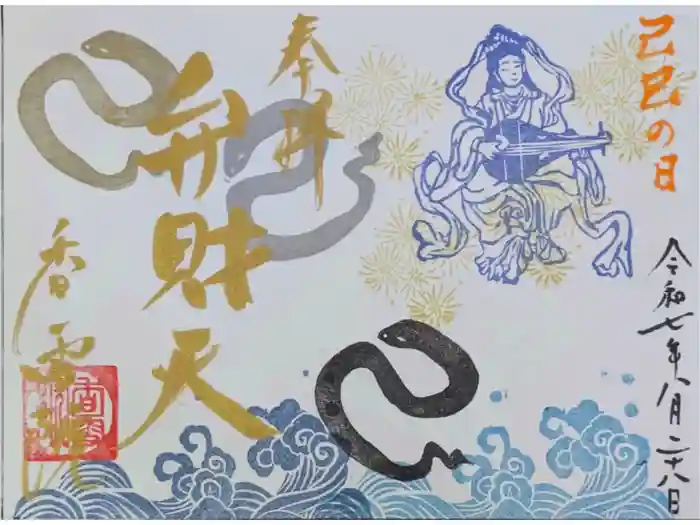 己巳の日
令和七年八月二十八日
奉拝
弁財天
香